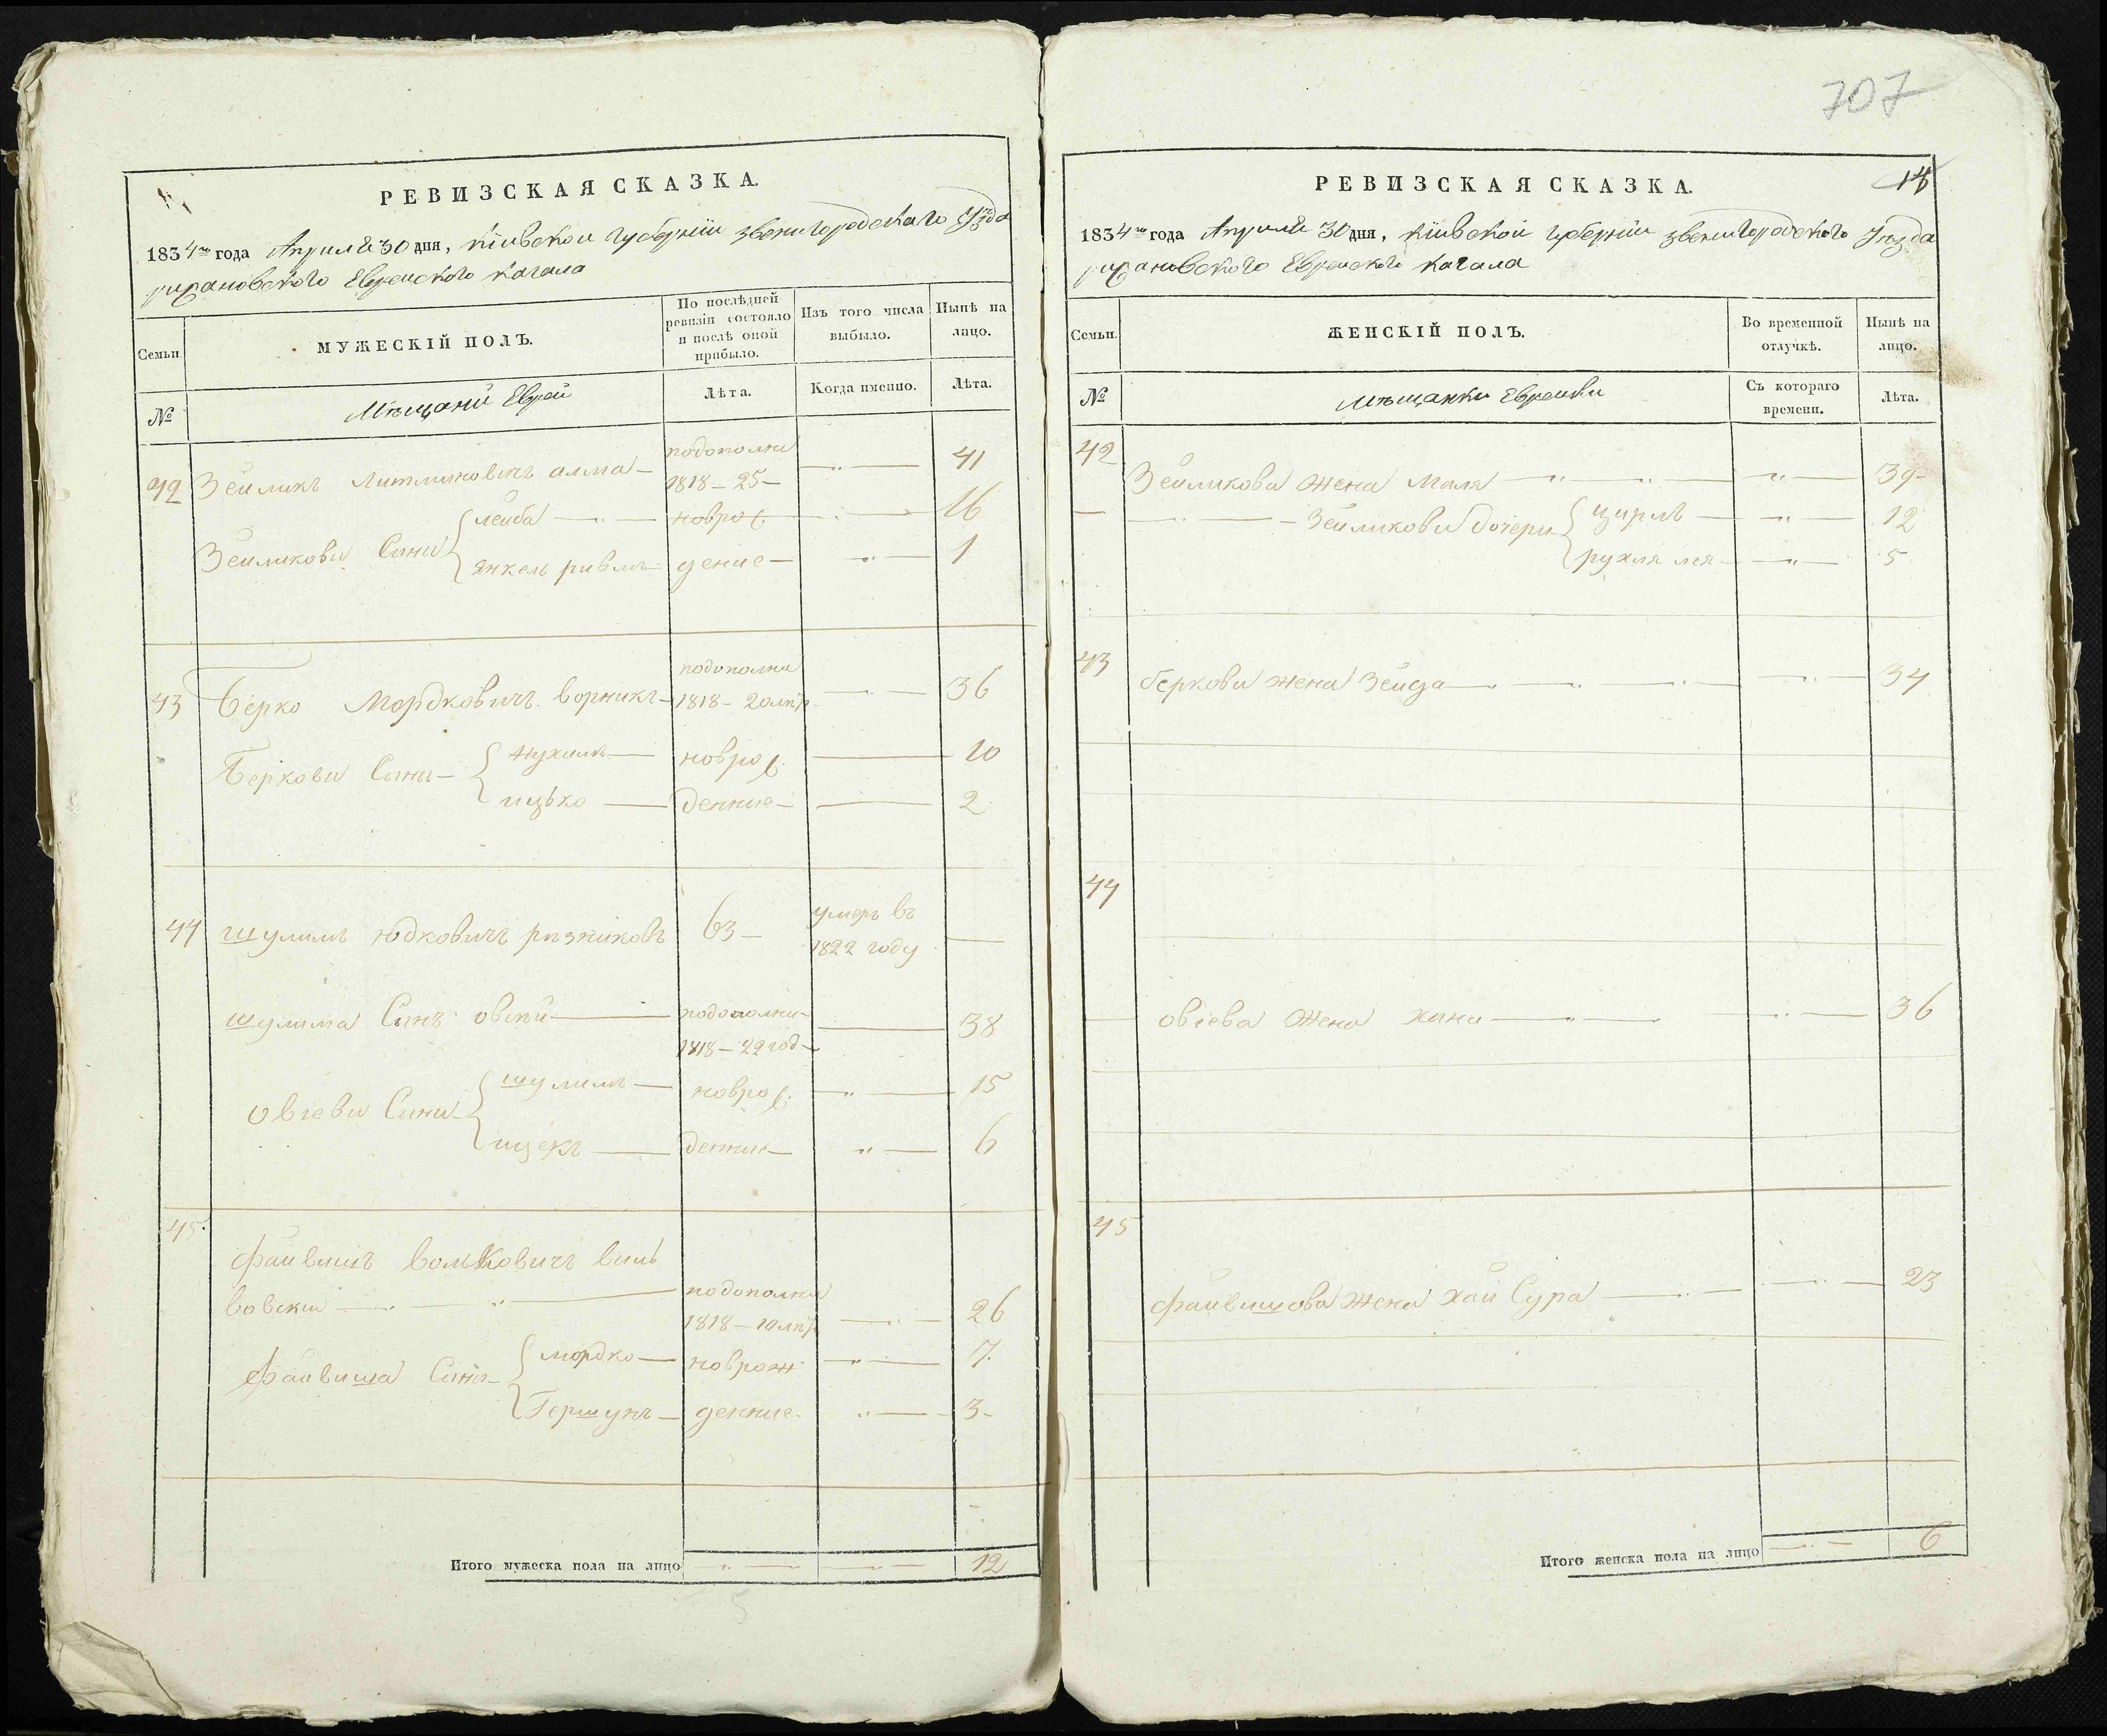 707
РЕВИЗСКАЯ СКАЗКА.
1834го года Апреля 30 дня, Кіивской губерніи Звенигородскаго Уѣзда
рижановского Еврейского Кагала
Семьи.
МУЖЕСКІЙ ПОЛЪ.
По послѣдней ревизіи состояло и послѣ оной прибыло.
Изъ того числа выбыло.
Нынѣ на лицо.
№
Мѣщани Евреи
Лѣта.
Когда именно.
Лѣта.
подополни
42 Зейликъ Литманович 41
1818 - 25 -
лейба новрож 16
Зейликови Сини
Янкель дение 1
подополни
43 Берко Мордковичъ Ворникъ 1818 - 20 лѣт 36
нухимъ новрож. 10
Беркови Сини
ицько дение 2
44 шулимъ Юдковичъ ризниковъ 63 - умеръ въ
1822 году
шулима Синъ овсѣй подополни 38
1818 - 22 год
шулимъ новрож. 15
овсіеви Сини
ицекъ дение 6
45.
файвишъ вольковичъ виль
вовский подополни
1818 - 10 лѣт 26
мордко новрож 7.
файвиша Сини
Гершунъ дение 3
Итого мужеска пола на лицо 12
РЕВИЗСКАЯ СКАЗКА.
1834го года Апреля 30 дня, Кіивской губерніи Звенигородского Уѣзда
рижановского Еврейского Кагала
Семьи.
ЖЕНСКІЙ ПОЛЪ.
Во временной отлучкѣ.
Нынѣ на лицо.
№
Мѣщанки Еврейки
Съ котораго времени.
Лѣта.
42
Зейликова жена Маля 39
Зейликови дочери цирлъ 12
рухля лея 5
43
беркови жена Зейда 34
44
овсіева жена хана 36
45
файвишова жена хая Сура 23
Итого женска пола на лицо 6